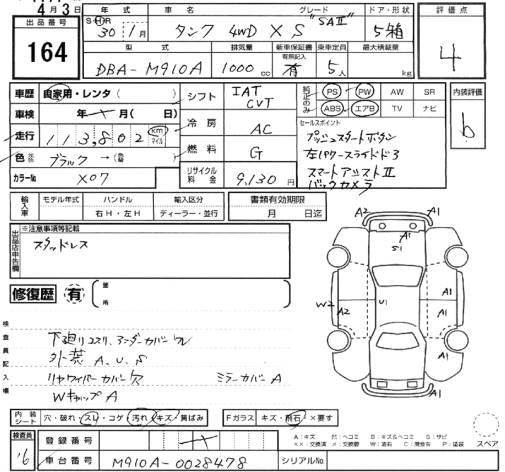 4月3日
出品番号
164
年式
車名
グレード
ドア・形状
評価点
S・H・R
30年1月
タンク 4WD XS "SAⅡ"
5箱
4
型式
排気量
新車保証書
有無記入
乗車定員
最大積載量
DBA-M910A
1000cc
有
5人
kg
車歴
自家用・レンタ(　)
シフト
IAT
CVT
純正のみ
PS PW AW SR
ABS エアB TV ナビ
内装評価
b
車検
年　月(　日)
冷房
AC
セールスポイント
走行
113,802
km
マイル
プッシュスタートボタン
左パワースライドドア
スマートアシストⅡ
バックカメラ
燃料
G
色
ブラック
カラーNo
X07
リサイクル料金
9,130円
輸入車
モデル年式
ハンドル
輸入区分
右H・左H
ディーラー・並行
書類有効期限
月　日迄
出品店申告欄
※注意事項等記載
スタッドレス
修復歴
有
箇所
検査員記入欄
下廻リコスリ、アンダーカバーワレ
外装 A、U、S
リヤワイパーカバー欠
ミラーカバーA
WキャップA
A2 A1
A1
S1
A1
W2 A2
U1
A1
A1
A2
A1
A1
内装シート
穴・破れ・スレ・コゲ・汚れ・キズ・黄ばみ
Fガラス
キズ・飛石・×要す
スペア
検査員
16
登録番号
車台番号
M910A-0028478
シリアルNo
A：キズ
B：キズ&ヘコミ
S：サビ
P：塗装